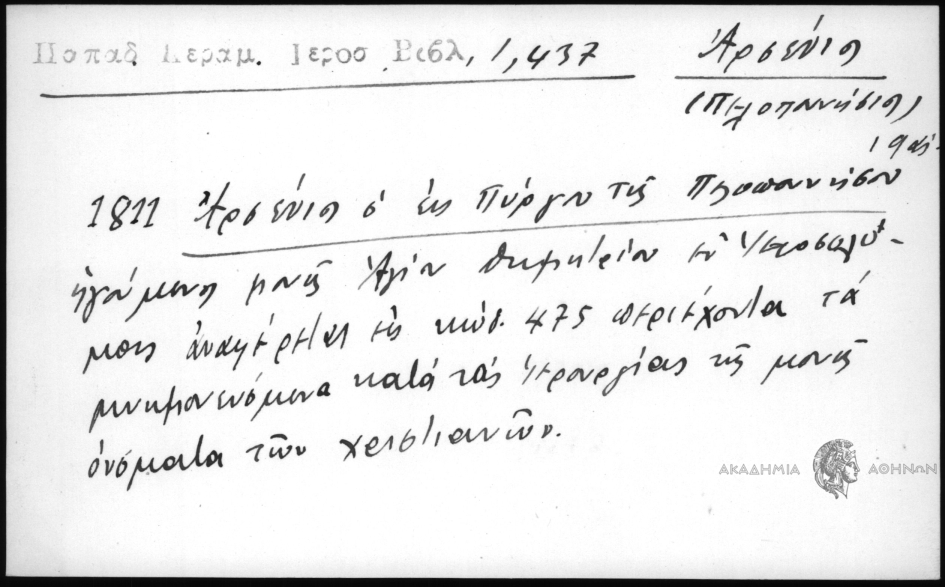 Παπαδ Κεραμ. Ιεροσ Βιβλ, 1, 437
Ἀρσένιος
(Πελοποννήσιος)
19 αἰ.
1811 Ἀρσένιος ὁ ἐκ Πύργου τῆς Πελοποννήσου
ἡγούμενος μονῆς Ἁγίου Δημητρίου ἐν Ἱεροσολύ-
μοις ἀναφέρεται εἰς κώδ. 475 περιέχοντα τά
μνημονευόμενα κατά τάς ἱερουργίας τῆς μονῆς
ὀνόματα τῶν χριστιανῶν.
ΑΚΑΔΗΜΙΑ ΑΘΗΝΩΝ